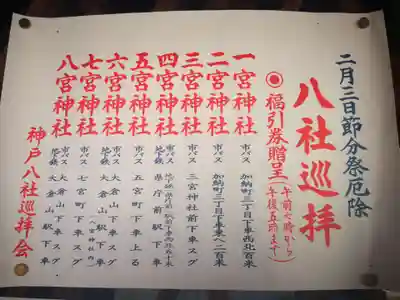 二月三日節分祭厄除
八社巡拝
◉福引券贈呈(午前七時から午後五時まで)
一宮神社 市バス 加納町三丁目下車西北百米
二宮神社 市バス 加納町三丁目下車東へ二百米
三宮神社 市バス 三宮神社前下車スグ
四宮神社 市バス 地下鉄 県庁前駅下車
五宮神社 市バス 五宮町下車上る
六宮神社 市バス 地下鉄 大倉山下車スグ 大倉山駅下車(八宮神社内)
七宮神社 市バス 七宮町下車スグ
八宮神社 市バス 地下鉄 大倉山下車スグ 大倉山駅下車
神戸八社巡拝会